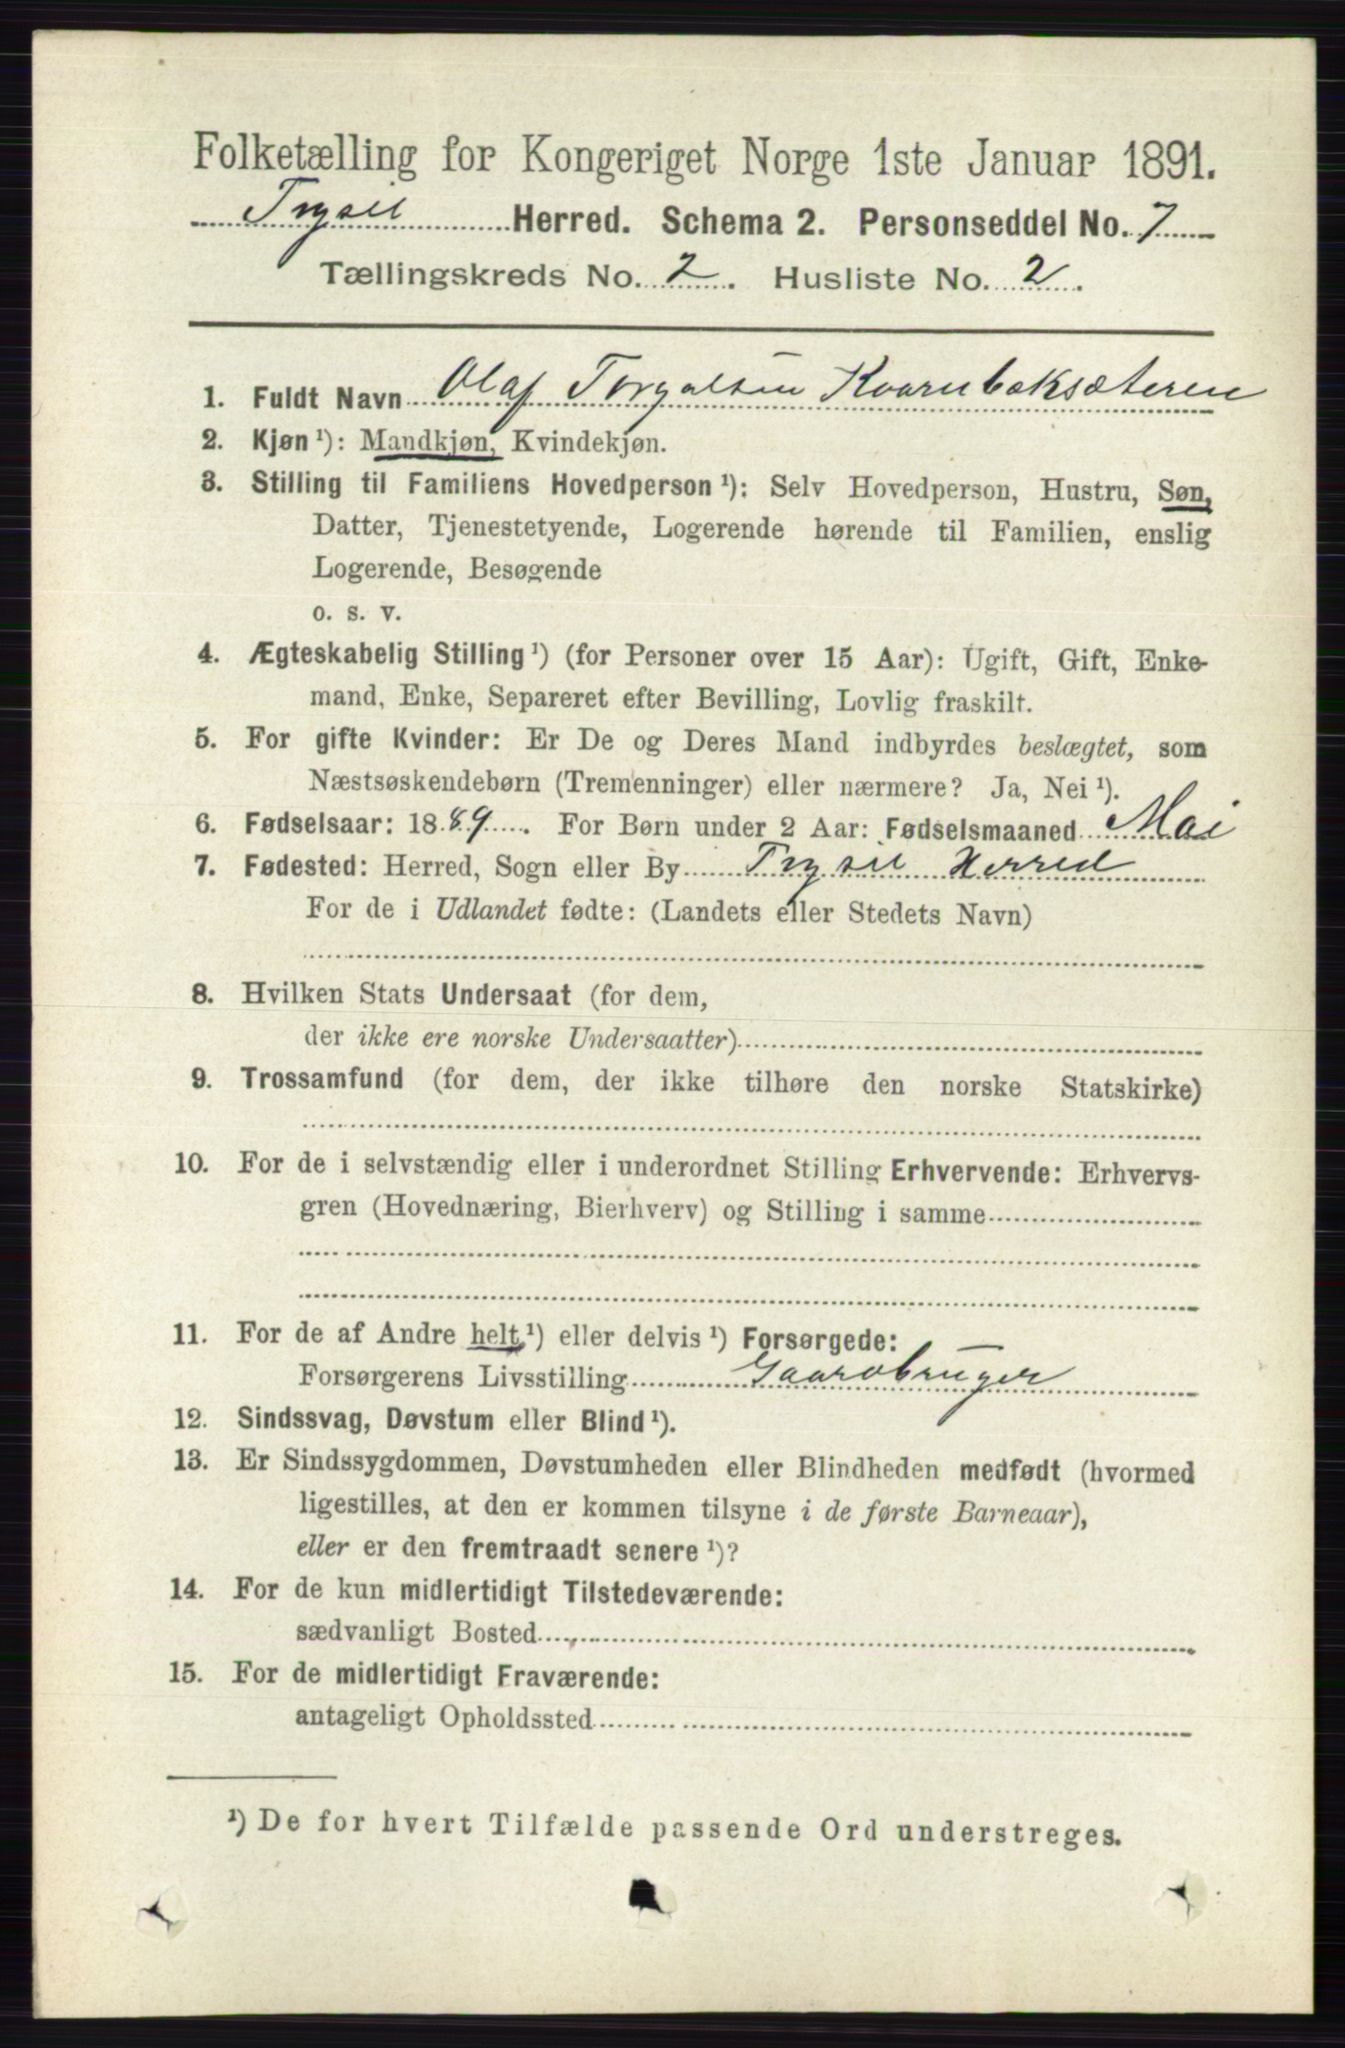 Folketælling for Kongeriget Norge 1ste Januar 1891.
Trysil Herred. Schema 2. Personseddel No. 7
Tællingskreds No. 2. Husliste No. 2.
1. Fuldt Navn Olaf Torgalsen Kvarnbæksæteren
2. Kjøn ¹): Mandkjøn, Kvindekjøn.
3. Stilling til Familiens Hovedperson ¹): Selv Hovedperson, Hustru, Søn,
Datter, Tjenestetyende, Logerende hørende til Familien, enslig
Logerende, Besøgende
o. s. v.
4. Ægteskabelig Stilling ¹) (for Personer over 15 Aar): Ugift, Gift, Enke-
mand, Enke, Separeret efter Bevilling, Lovlig fraskilt.
5. For gifte Kvinder: Er De og Deres Mand indbyrdes beslægtet, som
Næstsøskendebørn (Tremenninger) eller nærmere? Ja, Nei ¹).
6. Fødselsaar: 1889. For Børn under 2 Aar: Fødselsmaaned Mai
7. Fødested: Herred, Sogn eller By Trysil Herred
For de i Udlandet fødte: (Landets eller Stedets Navn)
8. Hvilken Stats Undersaat (for dem,
der ikke ere norske Undersaatter)
9. Trossamfund (for dem, der ikke tilhøre den norske Statskirke)
10. For de i selvstændig eller i underordnet Stilling Erhvervende: Erhvervs-
gren (Hovednæring, Bierhverv) og Stilling i samme
11. For de af Andre helt ¹) eller delvis ¹) Forsørgede:
Forsørgerens Livsstilling Gaardbruger
12. Sindssvag, Døvstum eller Blind ¹).
13. Er Sindssygdommen, Døvstumheden eller Blindheden medfødt (hvormed
ligestilles, at den er kommen tilsyne i de første Barneaar),
eller er den fremtraadt senere ¹)?
14. For de kun midlertidigt Tilstedeværende:
sædvanligt Bosted
15. For de midlertidigt Fraværende:
antageligt Opholdssted
¹) De for hvert Tilfælde passende Ord understreges.